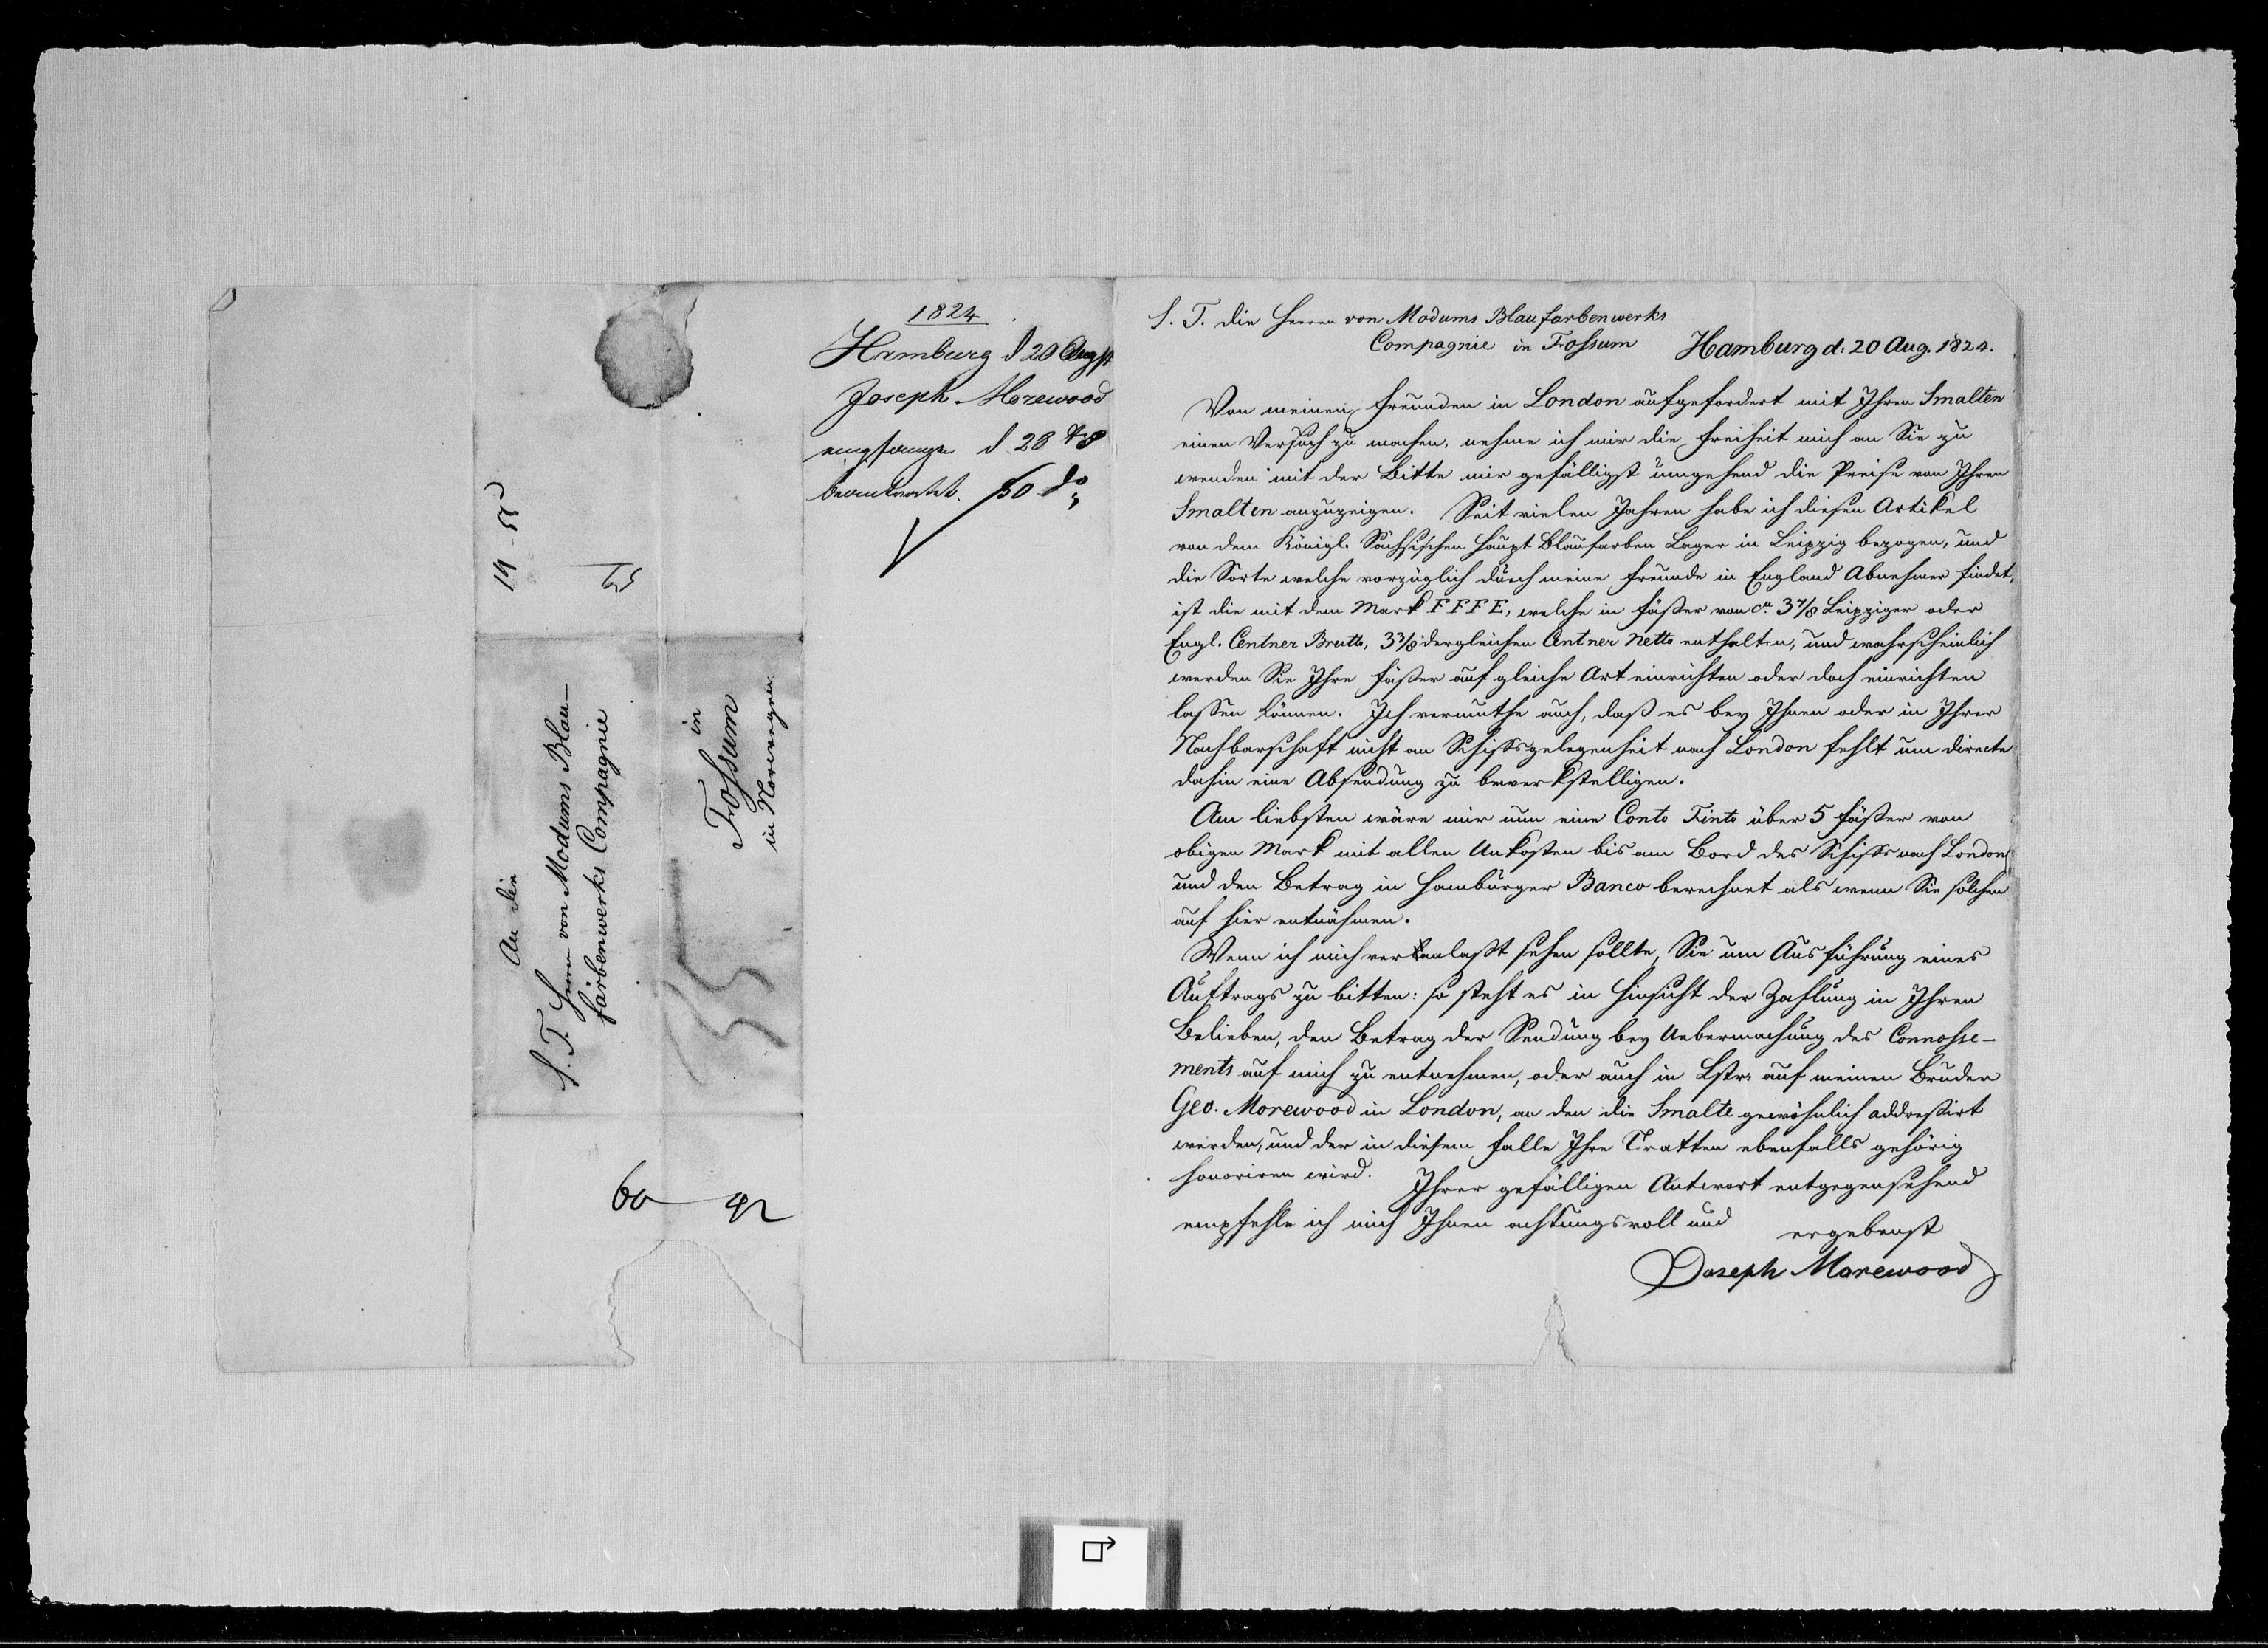 1824
Hamburg d 20 Augst
Joseph Morewood
empfangen d 28 7br
beantwortet. 30 do
An die
S. T. Herren von Modums Blau-
farbenwerks Compagnie
in
Fossum
in Norwegen
S. T. die Herren von Modums Blaufarbenwerks
Compagnie in Fossum Hamburg d: 20 Aug. 1824.
Von meinen Freunden in London aufgefordert mit Ihren Smalten
einen Versuch zu machen, nehme ich mir die Freiheit mich an Sie zu
wenden mit der Bitte mir gefälligst umgehend die Preise von Ihren
Smalten anzuzeigen. Seit vielen Jahren habe ich diesen Artikel
von dem Königl. Sächsischen Haupt Blaufarben Lager in Leipzig bezogen, und
die Sorte welche vorzüglich durch meine Freunde in England Abnehmer findet,
ist die mit dem Mark FFFE, welche in Fäßer von ca 3 7/8 Leipziger oder
Engl. Centner Brutto, 3 3/8 dergleichen Centner Netto enthalten, und wahrscheinlich
werden Sie Ihre Fäßer auf gleiche Art einrichten oder doch einrichten
laßen können. Ich vermuthe auch, daß es bey Ihnen oder in Ihrer
Nachbarschaft nicht an Schiffsgelegenheit nach London fehlt um directe
dahin eine Absendung zu bewerkstelligen.
Am liebsten wäre mir nun eine Conto Finto über 5 Fäßer von
obigen Mark mit allen Unkosten bis am Bord des Schiffs nach London
und den Betrag in Hamburger Banco berechnet als wenn Sie solchen
auf hier entnähmen.
Wenn ich mich veranlaßt sehen sollte, Sie um Ausführung eines
Auftrags zu bitten: so steht es in Hinsicht der Zahlung in Ihren
Belieben, den Betrag der Sendung bey Uebermachung des Connosse-
ments auf mich zu entnehmen, oder auch in Lstr. auf meinen Bruder
Geo. Morewood in London, an den die Smalte gewöhnlich addreßirt
werden, und der in diesem Falle Ihre Tratten ebenfalls gehörig
honoriren wird. Ihrer gefälligen Antwort entgegensehend
empfehle ich mich Ihnen achtungsvoll und ergebenst
Joseph Morewood